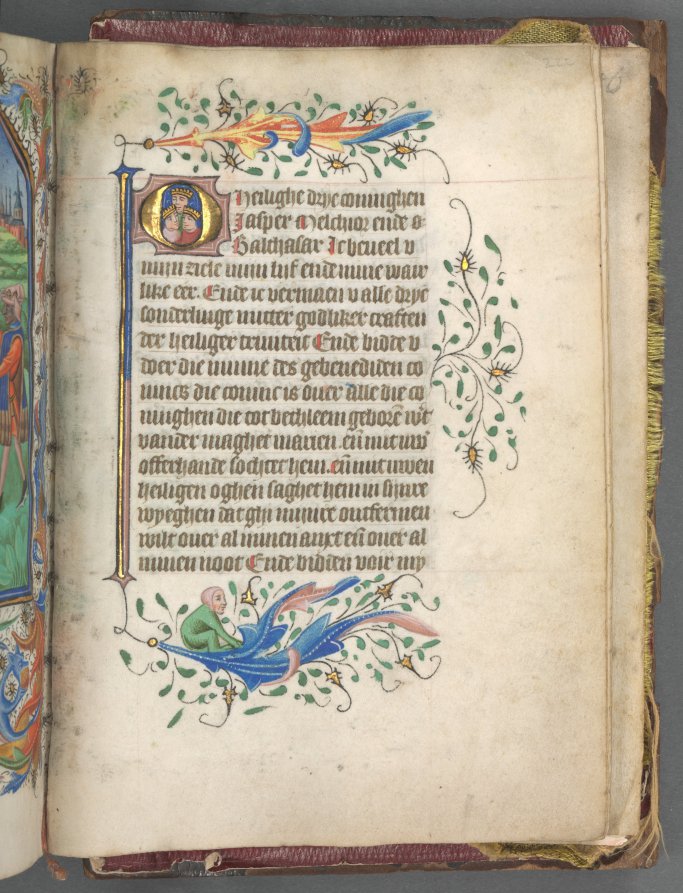 O heilighe drye coninghen
Jasper Melchior ende
Balthasar Ic beveel v
mijn ziele mijn lijf ende mine wair
like eer. Ende ic vermaen v alle drye
sonderlinge mitter godliker craften
der heiliger triniteit Ende bidde v
doer die minne des gebenediden co
nincs die coninc is over alle die co
ninghen die tot bethleem geborē wt
vander maghet marien. eñ mit uwer
offerhande sochtet hem. eñ mit uwen
heiligen oghen saghet hem in sijnre
wyeghen dat ghi mijnre ontfermen
wilt over al minen anxt eñ over al
minen noot Ende bidden voir my